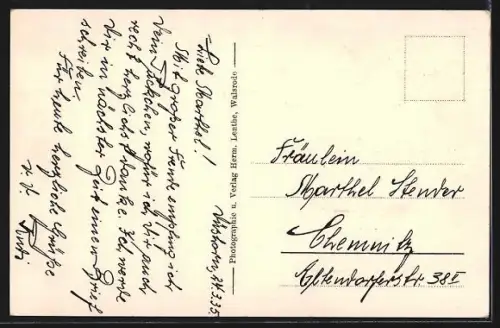 Liebe Marthel!
Mit großer Freude empfing ich
Dein Päckchen, wofür ich Dir auch
recht herzlich danke. Ich werde
Dir in nächster Zeit einen Brief
schreiben.
Für heute herzliche Grüße
Photographie u. Verlag Herm. Lenthe, Walsrode
Fräulein
Marthel Stender
Chemnitz
Altendorferstr. 38 II